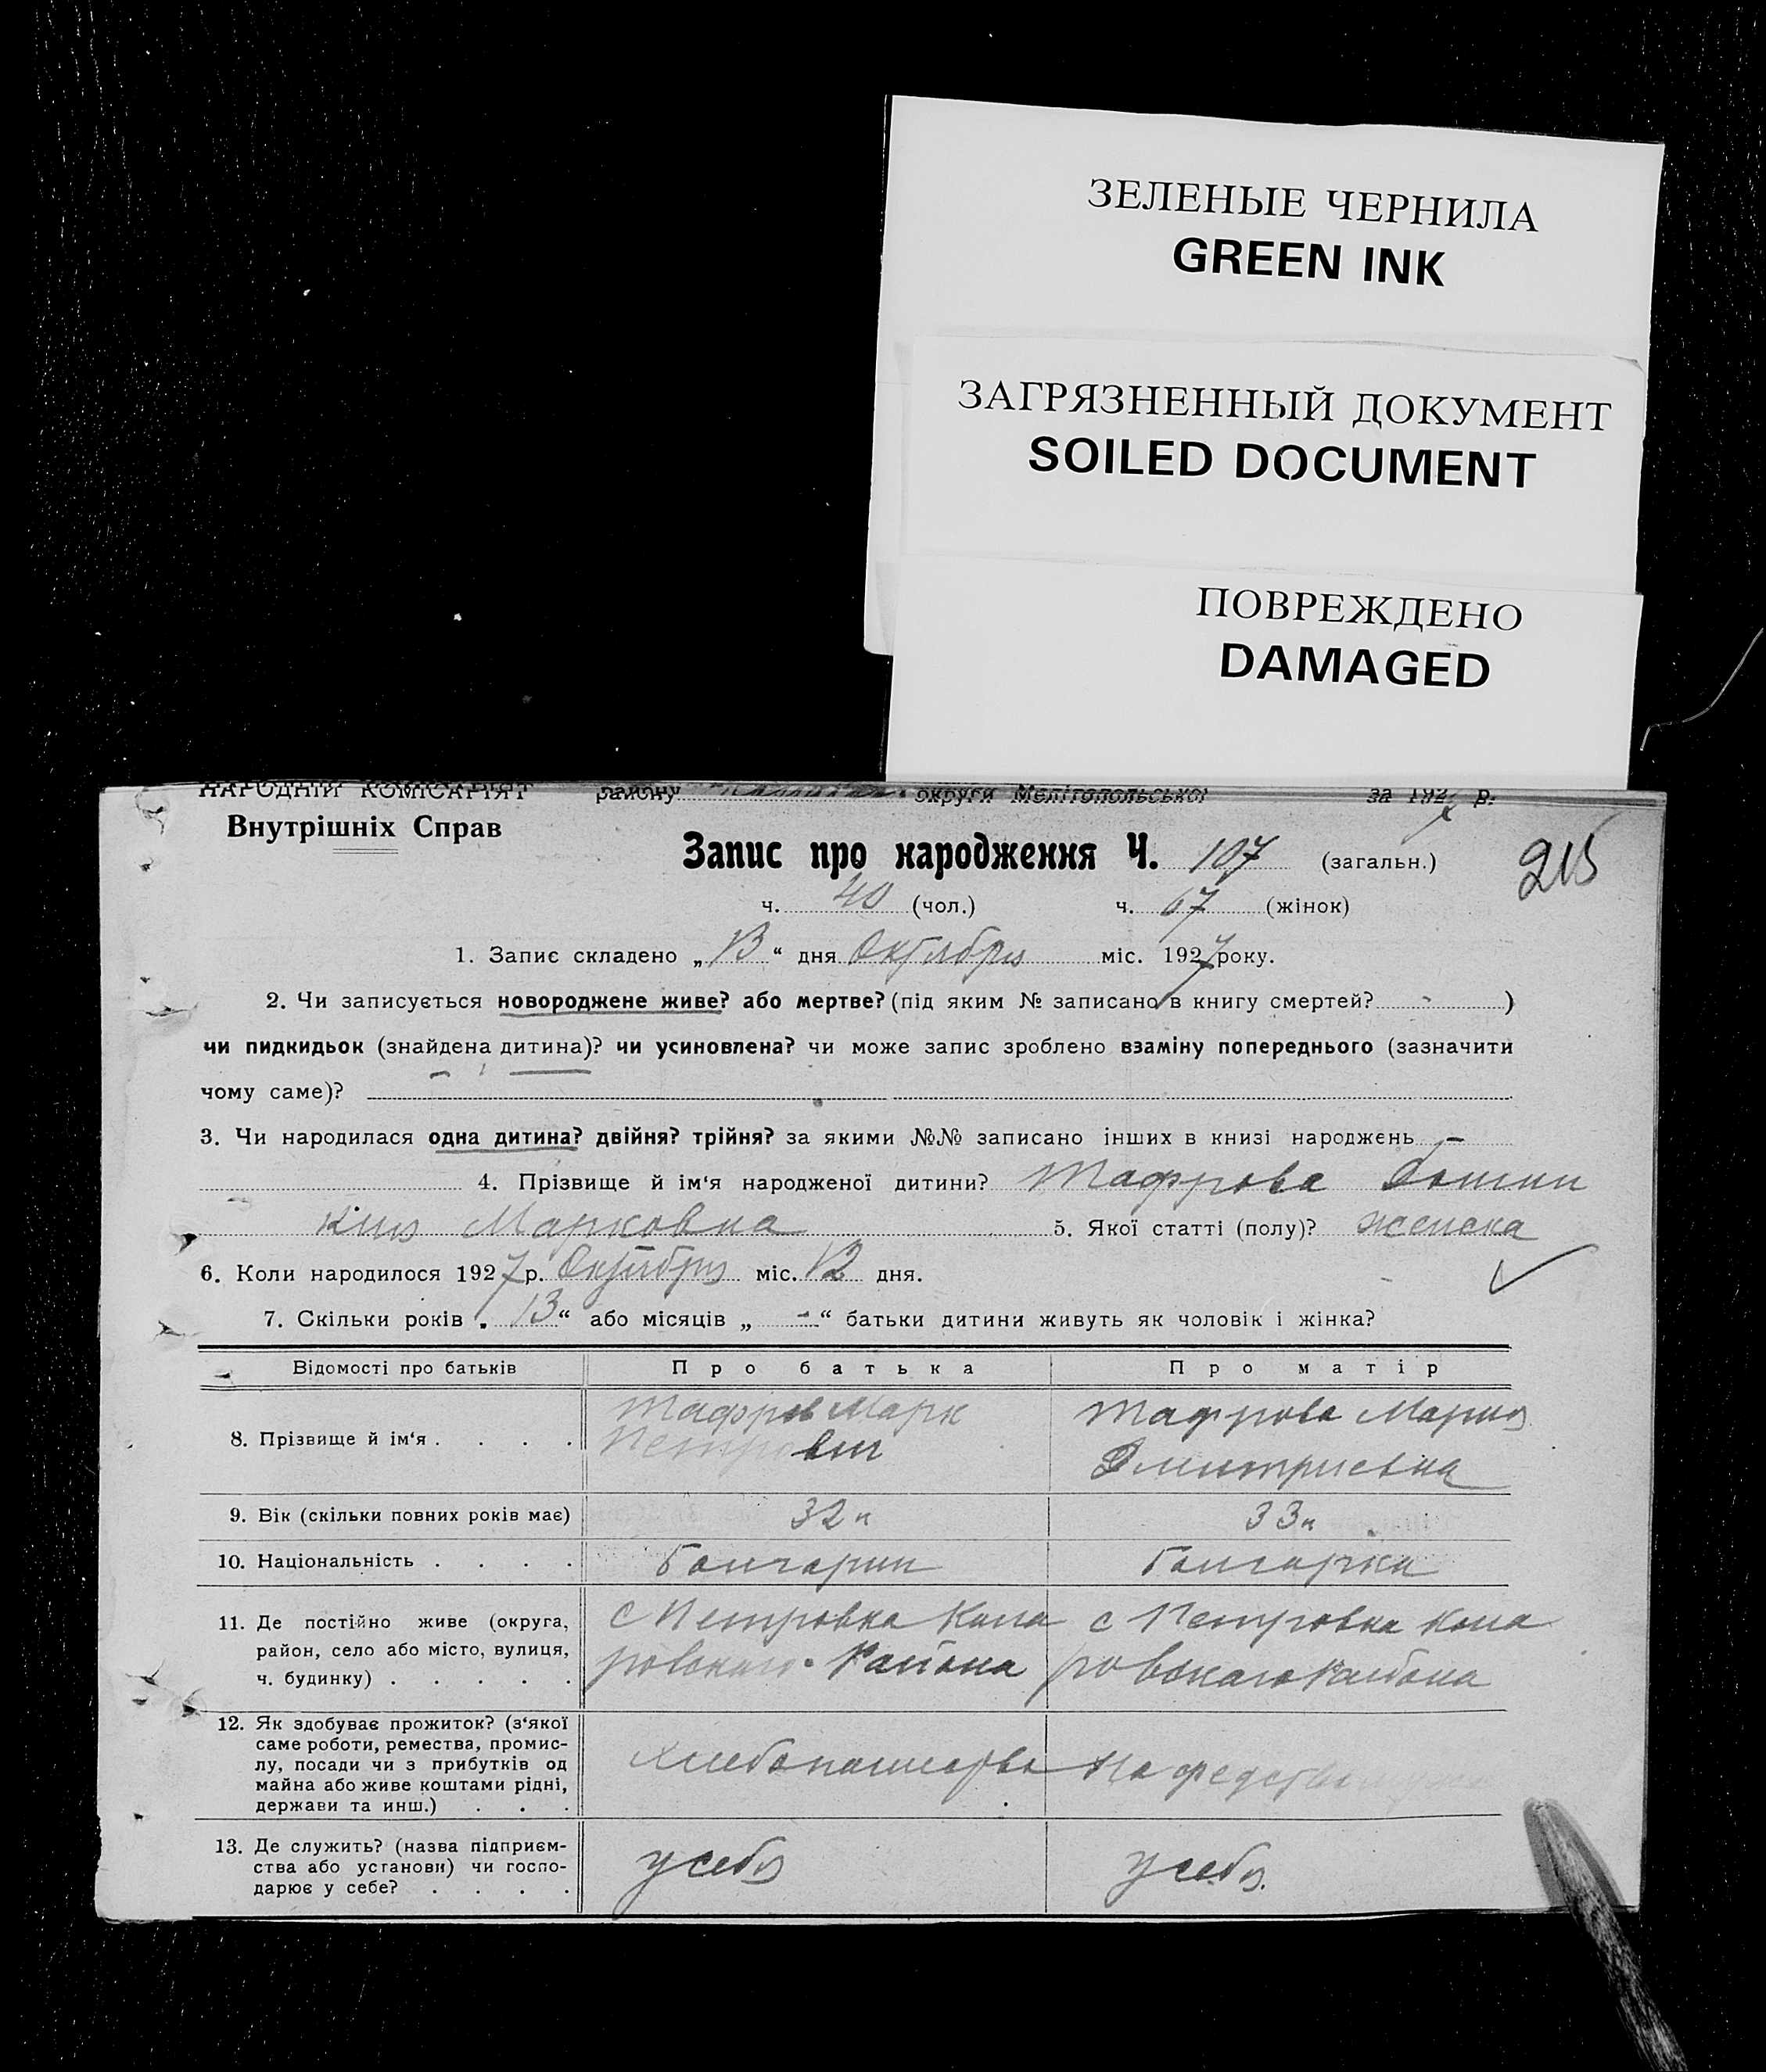 ЗЕЛЕНЫЕ ЧЕРНИЛА
GREEN INK
ЗАГРЯЗНЕННЫЙ ДОКУМЕНТ
SOILED DOCUMENT
ПОВРЕЖДЕНО
DAMAGED
НАРОДНІЙ КОМІСАРІЯТ району округи Мелітопольської за 1927 р.
Внутрішніх Справ
Запис про народження Ч. 107 (загальн.) 215
ч. 40 (чол.) ч. 67 (жінок)
1. Запис складено „13“ дня Октября міс. 1927 року.
2. Чи записується новороджене живе? або мертве? (під яким № записано в книгу смертей? - )
чи пидкидьок (знайдена дитина)? чи усиновлена? чи може запис зроблено взаміну попереднього (зазначити
чому саме)?
3. Чи народилася одна дитина? двійня? трійня? за якими №№ записано інших в книзі народжень -
4. Прізвище й ім‘я народженої дитини? Тафрова
Марковна 5. Якої статті (полу)? женска
6. Коли народилося 1927 р. Октября міс. 12 дня.
7. Скільки років „13“ або місяців „-“ батьки дитини живуть як чоловік і жінка?
Відомості про батьків Про батька Про матір
8. Прізвище й ім‘я . . . . Тафров Марк Петрович Тафрова Мария Дмитриевна
9. Вік (скільки повних років має) 32 33
10. Національність . . . . Болгарин Болгарка
11. Де постійно живе (округа, с Петровка Кола с Петровка Кола
район, село або місто, вулиця, ровскаго Района ровскаго Района
ч. будинку) . . . . .
12. Як здобуває прожиток? (з‘якої
саме роботи, ремества, промис-
лу, посади чи з прибутків од Хлебопашество На средства
майна або живе коштами рідні,
держави та инш.) . . .
13. Де служить? (назва підприєм-
ства або установи) чи госпо- у себя у себя
дарює у себе? . . . .